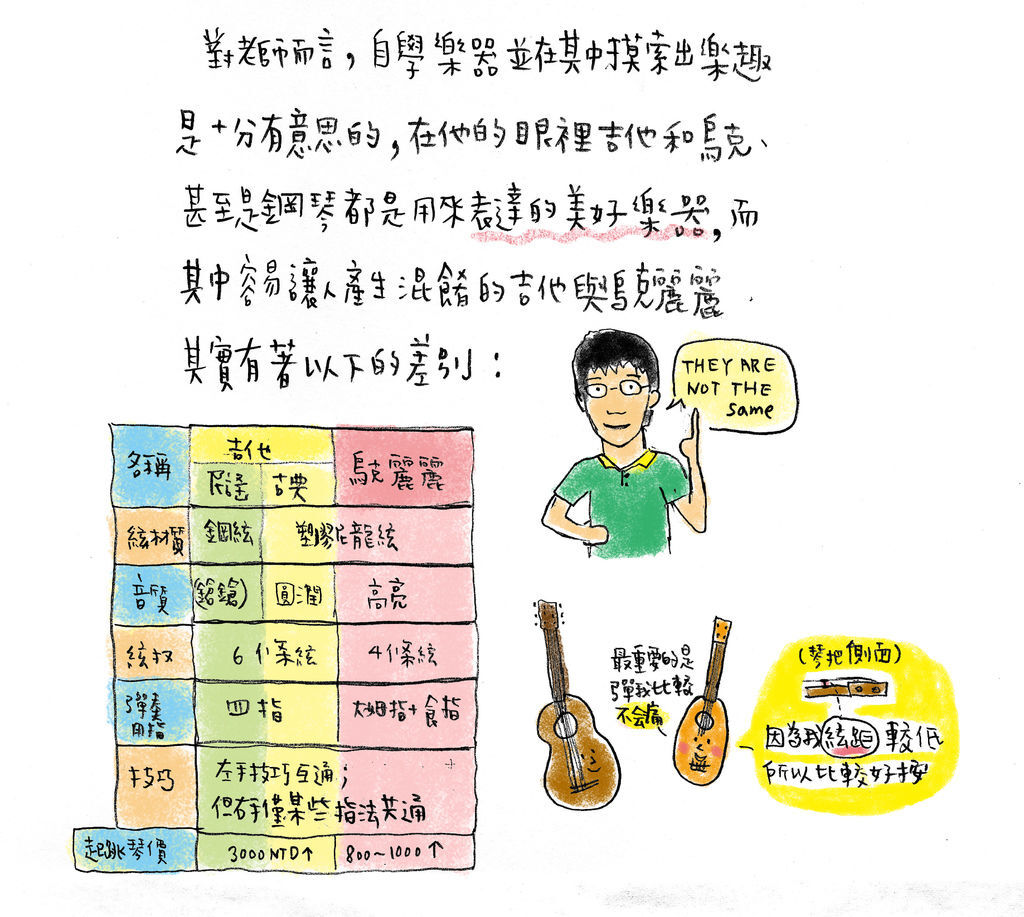 對老師而言，自學樂器並在其中摸索出樂趣
是十分有意思的，在他的眼裡吉他和烏克、
甚至是鋼琴都是用來表達的美好樂器，而
其中容易讓人產生混餚的吉他與烏克麗麗
其實有著以下的差別：
THEY ARE
NOT THE
same
名稱
吉他
民謠
古典
烏克麗麗
絃材質
鋼絃
塑膠尼龍絃
音質
(鏗鏘)
圓潤
高亮
絃数
6個條絃
4條絃
彈奏
用指
四指
大姆指+食指
技巧
左手技巧互通；
但右手僅某些指法共通
起跳琴價
3000NTD↑
800~1000↑
最重要的是
彈我比較
不会痛
(琴把側面)
因為我絃距較低
所以比較好按